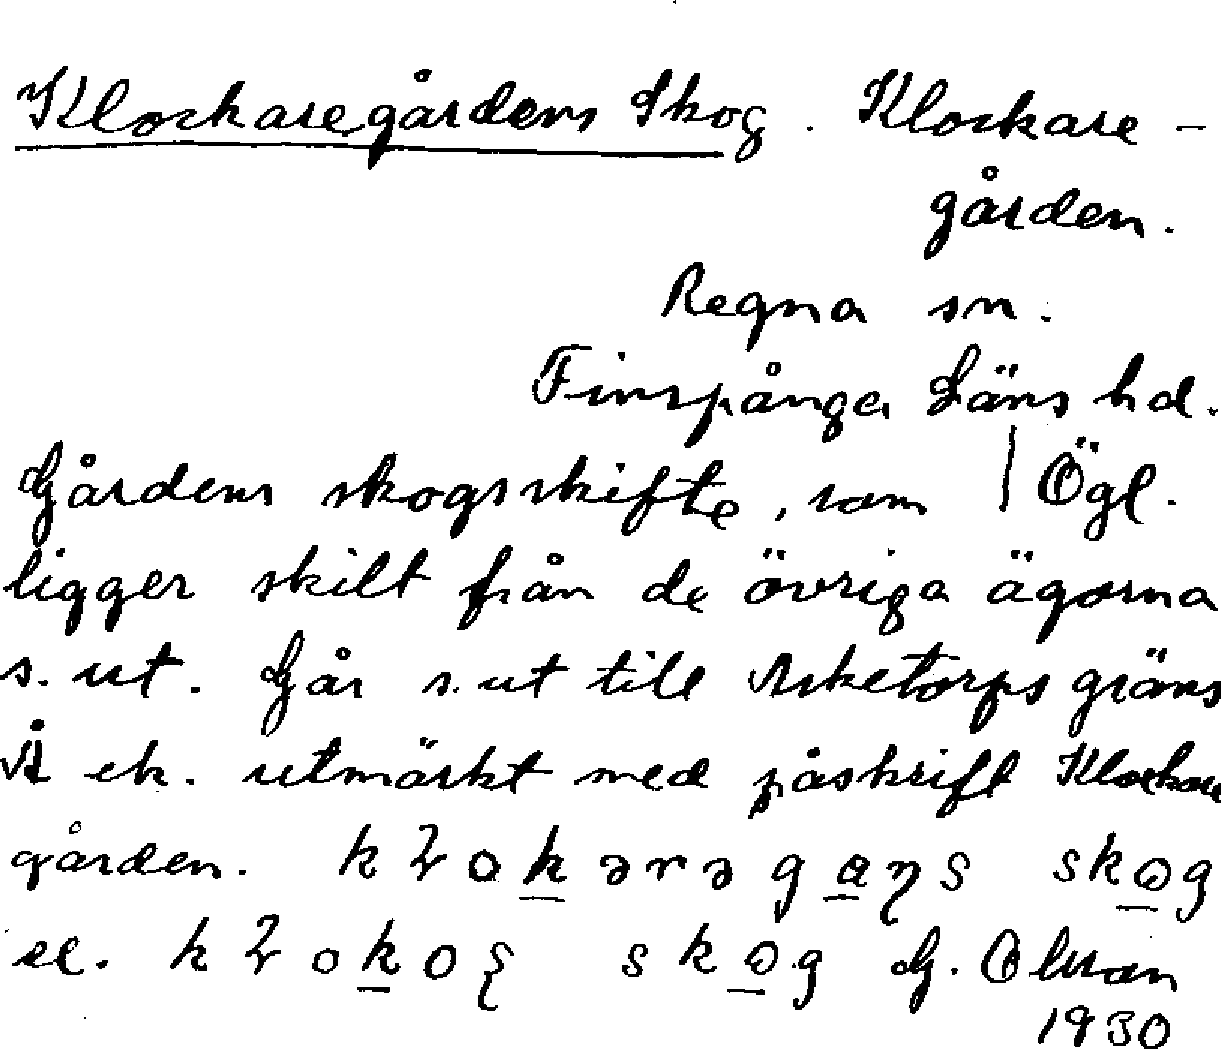 Klockaregårdens Skog. Klockare-
gården.
Regna sn.
Finspånga Läns hd.
Gårdens skogsskifte, som | Ögl.
ligger skilt från de övriga ägorna
s. ut. Går s. ut till Asketorps gräns
Å ek. utmärkt med påskrift Klockare
gården. skog
el. skog G. Olsson
1930